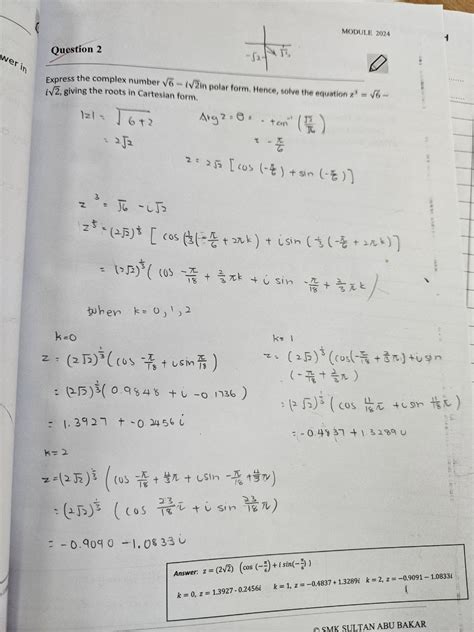 MODULE 2024
Question 2
-√2
√6
wer in
Express the complex number √6 − i√2in polar form. Hence, solve the equation z³ = √6 −
i√2, giving the roots in Cartesian form.
|z| = √6+2
= 2√2
Arg z = θ = - tan⁻¹ (√2/√6)
= -π/6
z = 2√2 [cos (-π/6) + sin (-π/6)]
z³ = √6 - i√2
= (2√2)^⅓ [ cos (⅓(-π/6 + 2πk) + i sin (⅓(-π/6 + 2πk)]
= (2√2)^⅓ ( cos -π/18 + 2/3 πk + i sin -π/18 + 2/3 πk)
when k = 0, 1, 2
k=0
z = (2√2)^⅓ (cos -π/18 + i sin π/18)
= (2√2)^⅓ ( 0.9848 + i -0.1736)
= 1.3927 + -0.2456 i
k= 1
z = (2√2)^⅓ (cos(-π/18 + 2/3 π) + i sin
(-π/18 + 2/3 π)
= (2√2)^⅓ (cos 11/18 π + i sin 11/18 π)
= -0.4837 + 1.3289 i
k = 2
z = (2√2)^⅓ (cos -π/18 + 4/3 π + i sin -π/18 + 4/3 π)
= (2√2)^⅓ (cos 23/18 π + i sin 23/18 π)
= -0.9090 - 1.0833 i
Answer: z = (2√2) (cos (−π/6) + i sin(−π/6))
k = 0, z = 1.3927 - 0.2456i k = 1, z = −0.4837 + 1.3289i k = 2, z = −0.9091 − 1.0833i
© SMK SULTAN ABU BAKAR